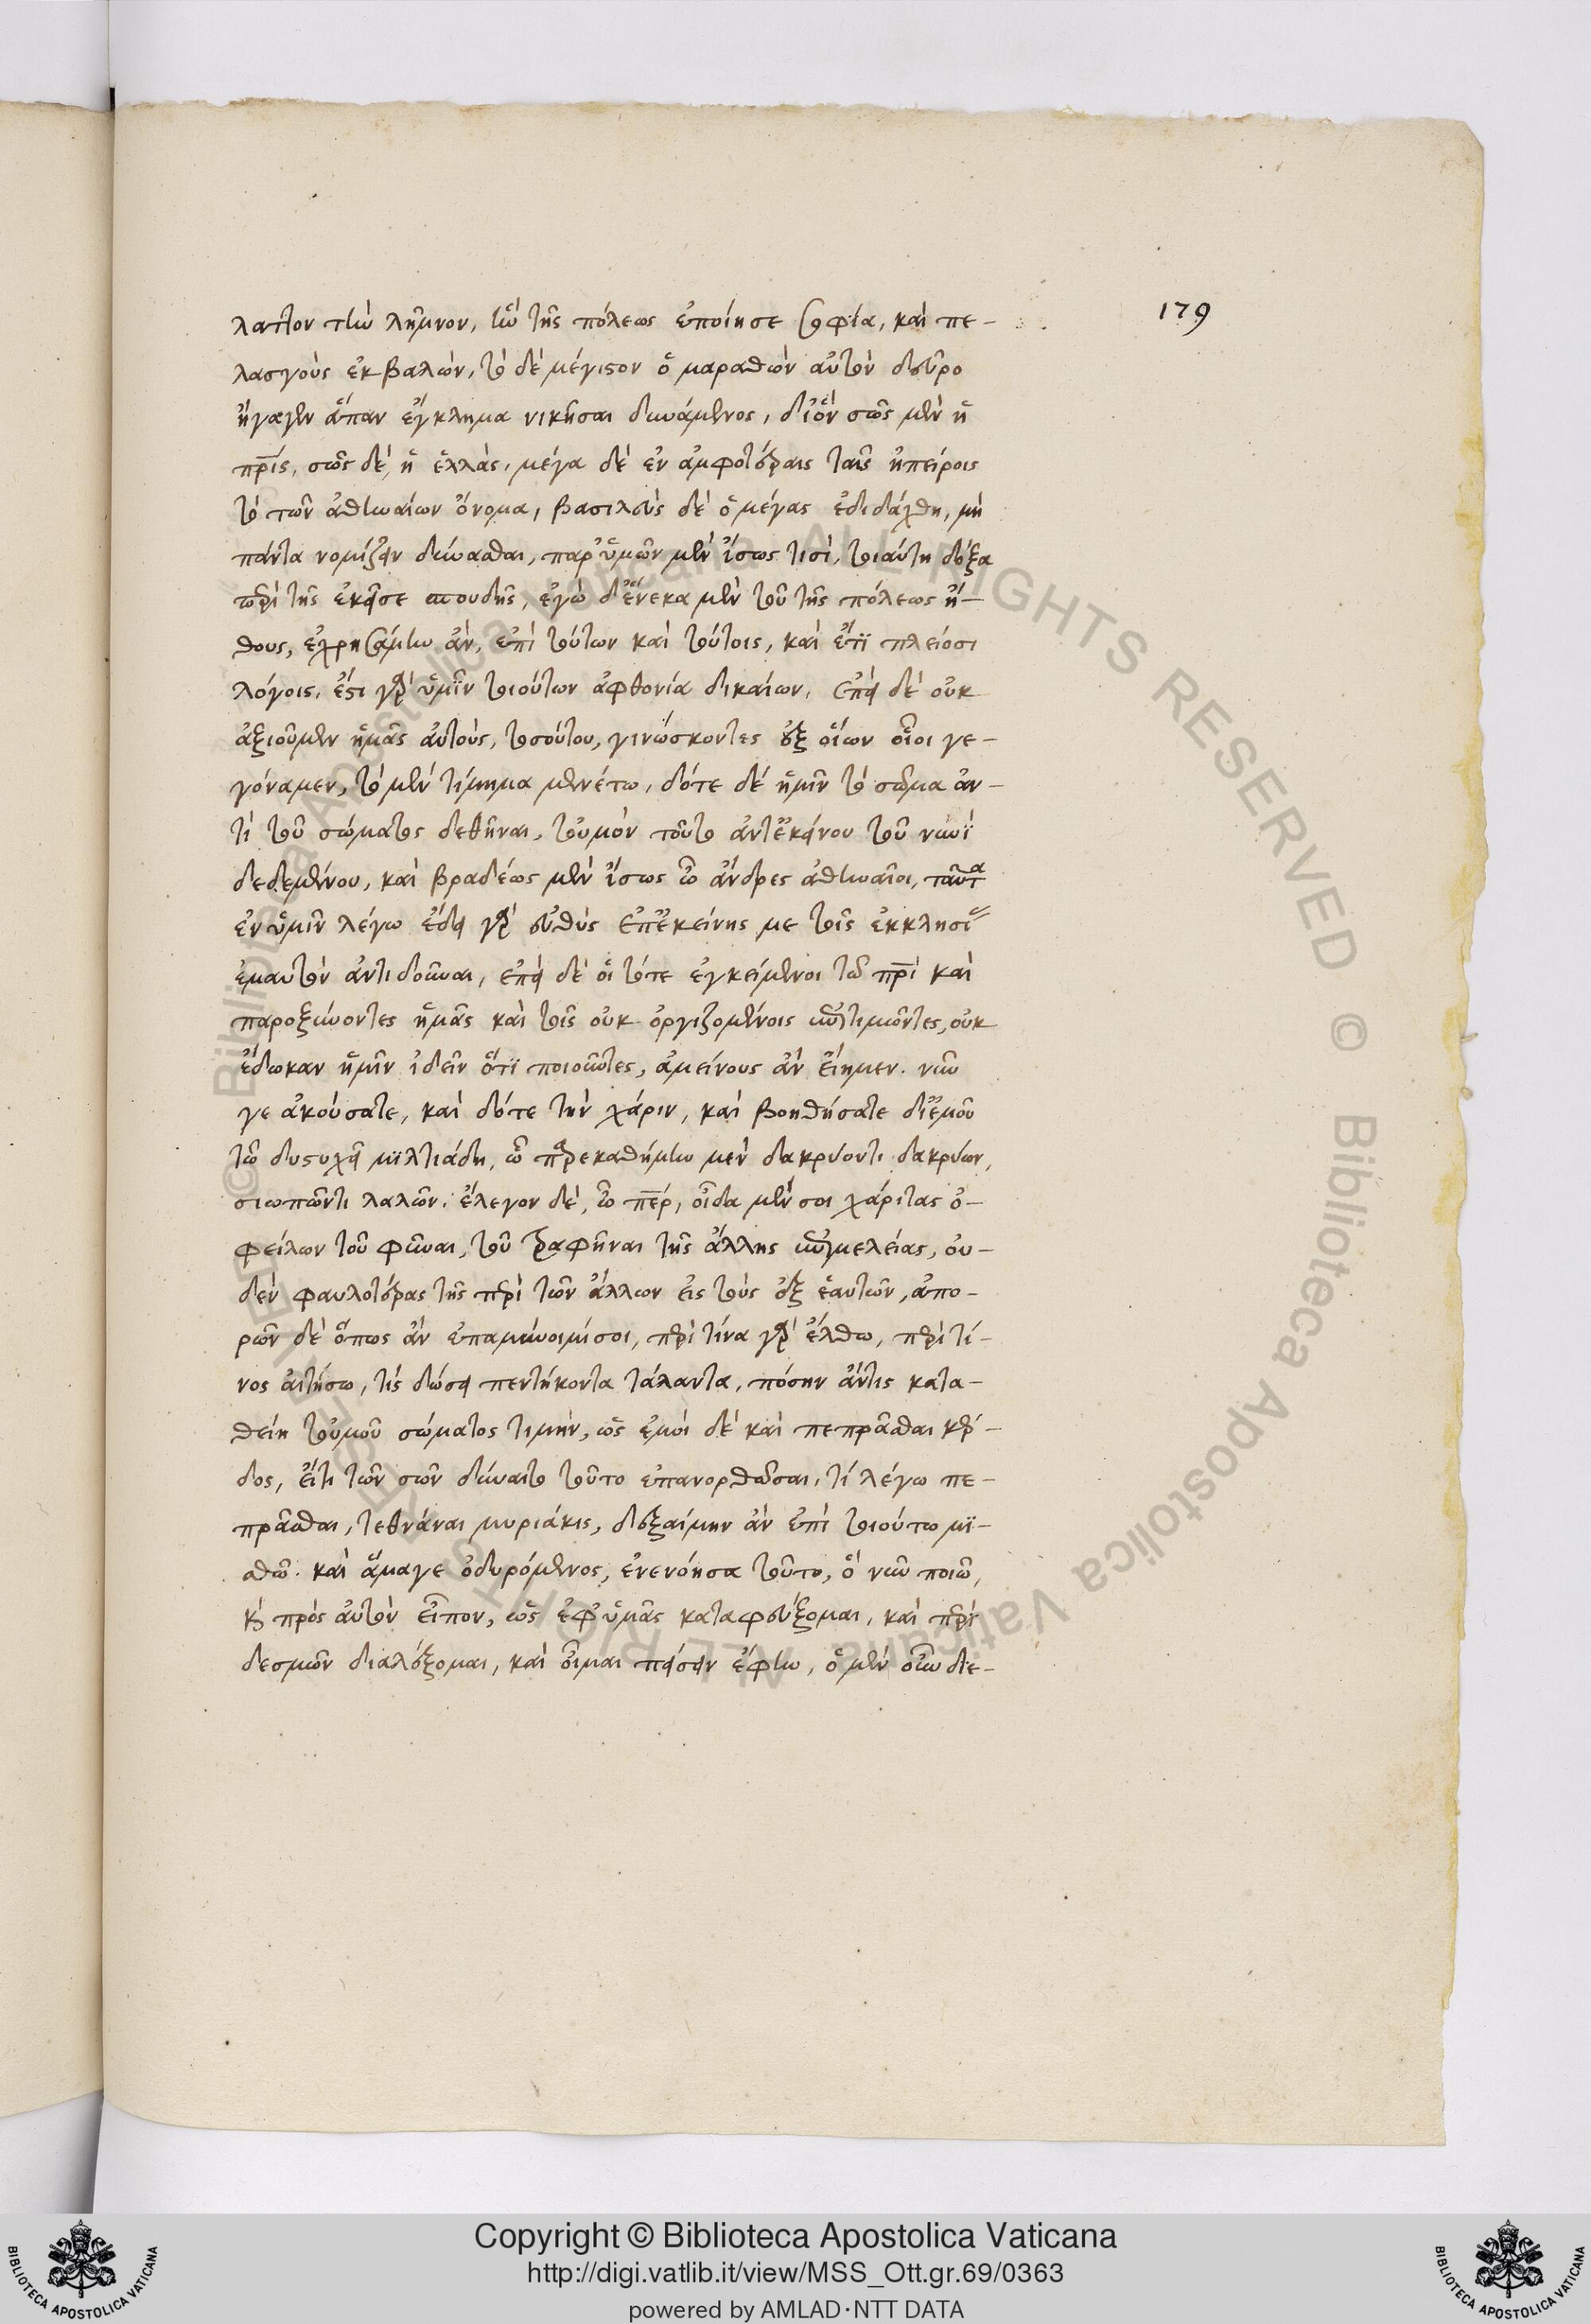 179
λαττον τὴν λῆμνον, ἣν τῆς πόλεως ἐποίησε σοφία, καὶ πε-
λασγοὺς ἐκβαλὼν, τὸ δὲ μέγιστον ὁ μαραθὼν αὐτὸν δεῦρο
ἤγαγεν ἅπαν ἔγκλημα νικῆσαι δυνάμενος, δι' ὃν σῶς μὲν ἡ
πρῒς, σῶς δὲ, ἡ ἑλλὰς, μέγα δὲ ἐν ἀμφοτέραις ταῖς ἠπείροις
τὸ τῶν ἀθηναίων ὄνομα, βασιλεὺς δὲ ὁ μέγας ἐδιδάχθη, μὴ
πάντα νομίζειν δύνασθαι, παρ' ὑμῶν μὲν ἴσως τισὶ, τοιαύτη δόξα
περὶ τῆς ἐκεῖσε σπουδῆς, ἐγὼ δ' ἕνεκα μὲν τοῦ τῆς πόλεως ἤ-
θους, ἐχρησάμην ἂν, ἐπὶ τούτων καὶ τούτοις, καὶ ἔτι πλείοσι
λόγοις, ἔστι γὰρ ὑμῖν τοιούτων ἀφθονία δικαίων, ἐπεὶ δὲ οὐκ
ἀξιοῦμεν ἡμᾶς αὐτοὺς, τοσούτου, γινώσκοντες ἐξ οἵων οἷοι γε-
γόναμεν, τὸ μὲν τίμημα μενέτω, δότε δὲ ἡμῖν τὸ σῶμα ἀν-
τὶ τοῦ σώματος δεθῆναι, τοὐμὸν τοῦτο ἀντ' ἐκείνου τοῦ νυνὶ
δεδεμένου, καὶ βραδέως μὲν ἴσως ὦ ἄνδρες ἀθηναῖοι, ταῦτα
ἐν ὑμῖν λέγω ἔδει γὰρ εὐθὺς ἐπ' ἐκείνης με τοῖς ἐκκλησί
ἐμαυτὸν ἀντιδοῦναι, ἐπεὶ δὲ οἱ τότε ἐγκείμενοι τῶ πρὶ καὶ
παροξύνοντες ἡμᾶς καὶ τοῖς οὐκ ὀργιζομένοις ἐπιτιμῶντες, οὐκ
ἔδωκαν ἡμῖν ἰδεῖν ὅτι ποιοῦντες, ἀμείνους ἂν εἴημεν. νῦν
γε ἀκούσατε, καὶ δότε τὴν χάριν, καὶ βοηθήσατε δι' ἐμοῦ
τῶ δυστυχεῖ μιλτιάδη, ὧ παρεκαθήμην μὲν δακρύοντι δακρύων,
σιωπῶντι λαλῶν. ἔλεγον δὲ, ὦ περ, οἶδα μὲν σοι χάριτας ὀ-
φείλων τοῦ φῦναι, τοῦ τραφῆναι τῆς ἄλλης ἐπιμελείας, οὐ-
δὲν φαυλοτέρας τῆς παρὰ τῶν ἄλλων εἰς τοὺς ἐξ ἑαυτῶν, ἀπο-
ρῶν δὲ ὅπως ἂν ἐπαμύνοιμί σοι, παρὰ τίνα γὰρ ἔλθω, παρὰ τί-
νος αἰτήσω, τίς δώσει πεντήκοντα τάλαντα, πόσην ἄν τις κατα-
θείη τοὐμοῦ σώματος τιμὴν, ὡς ἐμοὶ δὲ καὶ πεπρᾶσθαι κέρ-
δος, εἴ τι τῶν σῶν δύναιτο τοῦτο ἐπανορθῶσαι, τί λέγω πε-
πρᾶσθαι, τεθνάναι μυριάκις, δεξαίμην ἂν ἐπὶ τοιούτω μι-
σθῶ. καὶ ἅμα γε ὀδυρόμενος, ἐνενόησα τοῦτο, ὃ νῦν ποιῶ,
καὶ πρὸς αὐτὸν εἶπον, ὡς ἐφ' ὑμᾶς καταφεύξομαι, καὶ περὶ
δεσμῶν διαλέξομαι, καὶ οἶμαι πείσειν ἔφην, ὁ μὲν οὖν δι-
Copyright © Biblioteca Apostolica Vaticana
http://digi.vatlib.it/view/MSS_Ott.gr.69/0363
powered by AMLAD·NTT DATA